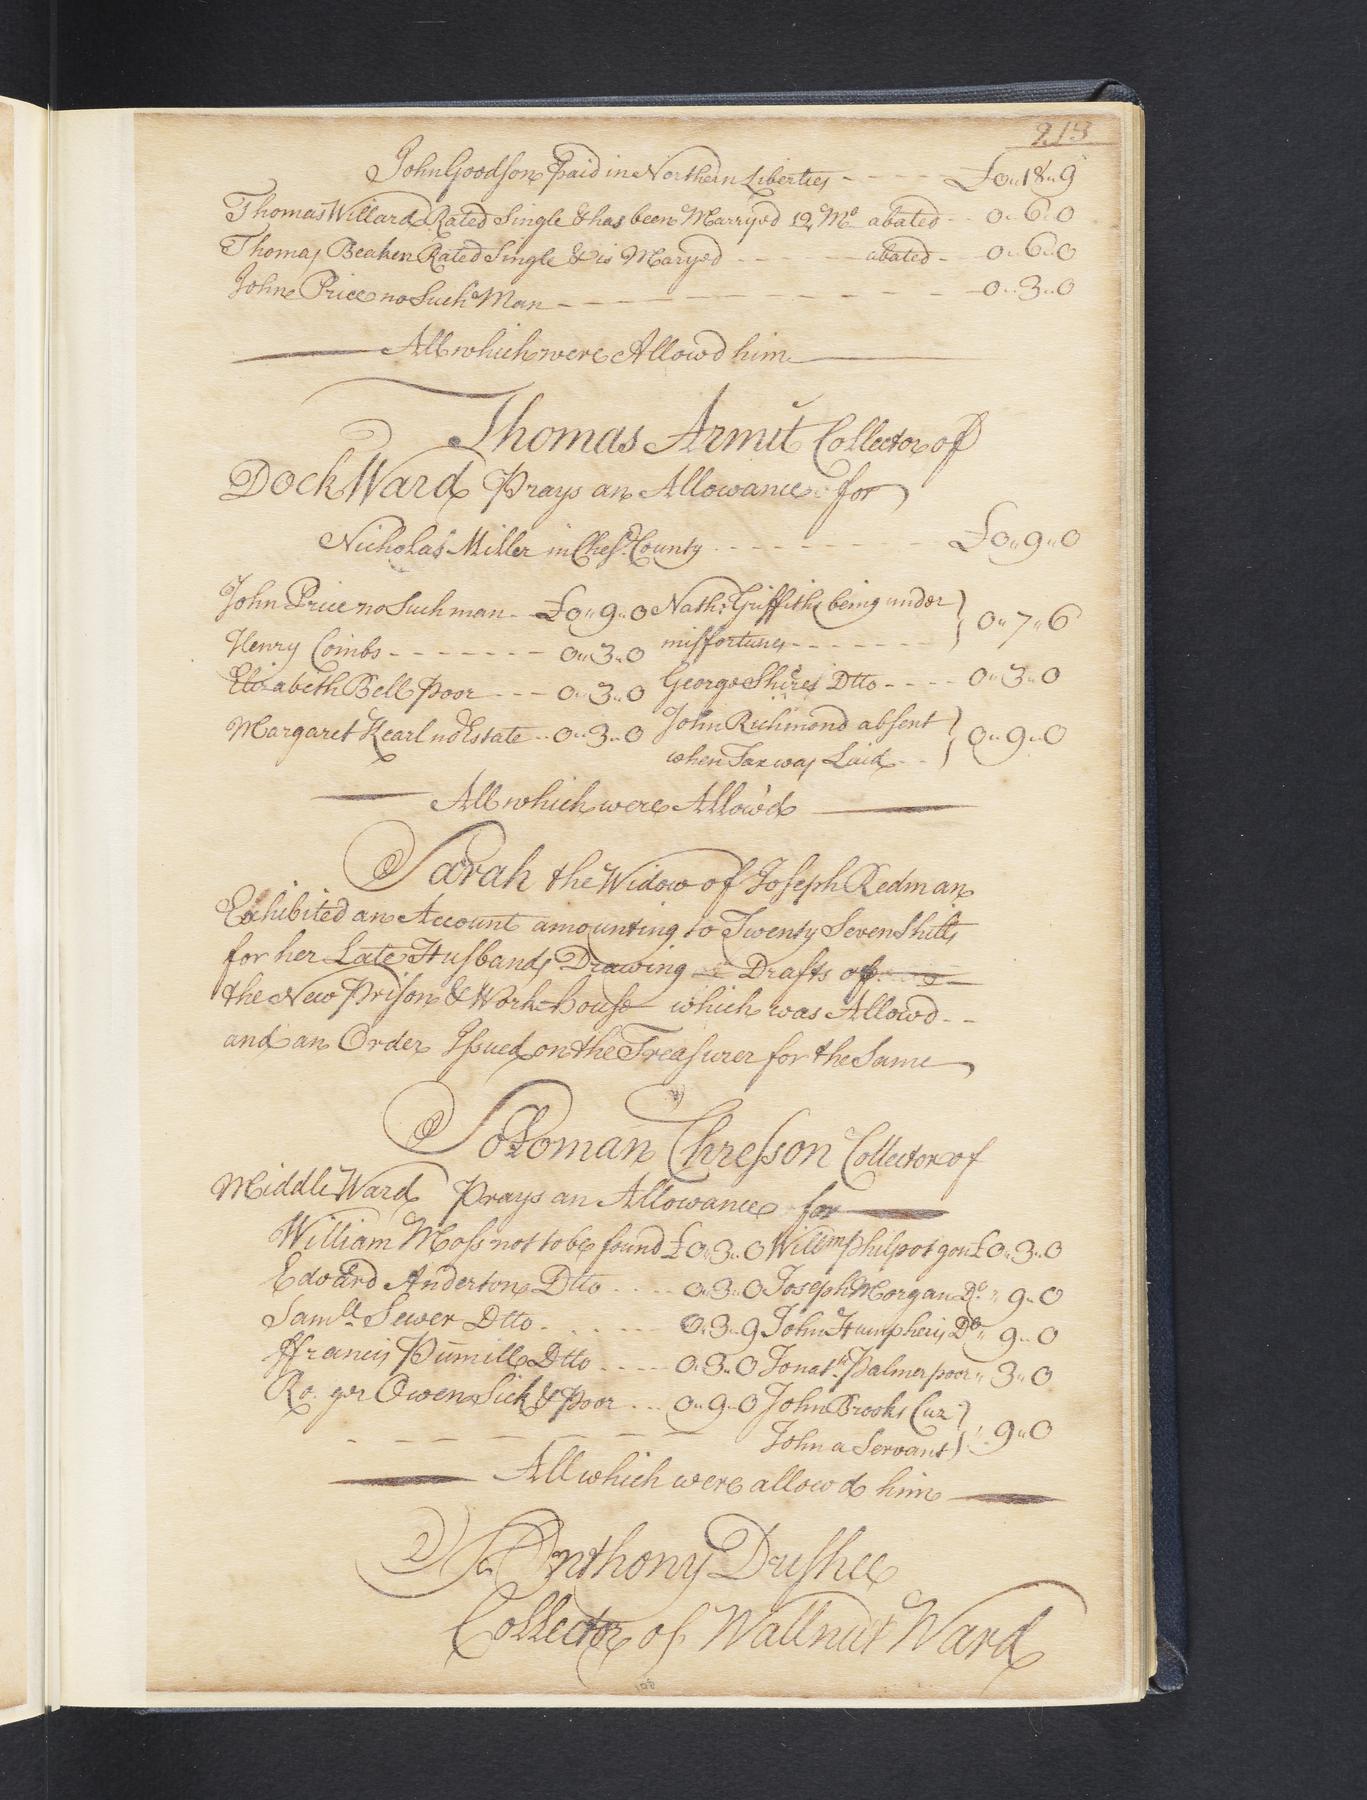 213
John Goodson Paid in Northern Liberties - - - - £0..18..9
Thomas Willard Rated Single & has been Marryed 12 Mo. abated - - 0..6..0
Thomas Beaken Rated Single & is Maryed - - - - abated - - 0..6..0
John Price no Such Man - - - - - - - - - - 0..3..0
All which were Allowd him
Thomas Armit Collector of
Dock Ward Prays an Allowance for
Nicholas Miller in Chest. County - - - - - - £0..9..0
John Price no Such man - - £0..9..0 Nath: Griffiths being under
misfortunes - - - - - - - } 0..7..6
Henry Combs - - - - - - - 0..3..0
Elizabeth Bell Poor - - - 0..3..0 George Shires Dtto - - - - 0..3..0
Margaret Kearl no Estate - - 0..3..0 John Richmond absent
when Tax was Laid - - } 0..9..0
All which were Allow'd
Sarah the Widow of Joseph Redman
Exhibited an Account amounting to Twenty Seven Shills
for her Late Husbands Drawing Drafts of
the New Prison & Work-house which was Allowd - -
and an Order Issued on the Treasurer for the Same
Soloman Chresson Collector of
Middle Ward Prays an Allowance for
William Moss not to be found £0..3..0 Willm Philpot gon £0..3..0
Edward Anderton Dtto . . . . 0..3..0 Joseph Morgan Do. .. 9..0
Samll. Sewer Dtto . . . . . 0..3..9 John Humpheris Do .. 9..0
ffrancis Pumill Dtto - - - - 0..3..0 Jonath. Palmer poor .. 3..0
Ro. ger Owen Sick & Poor . . . 0..9..0 John Brooks Cur
John a Servant } .. 9..0
All which were allowd him
Anthony Dushee
Collector of Wallnut Ward